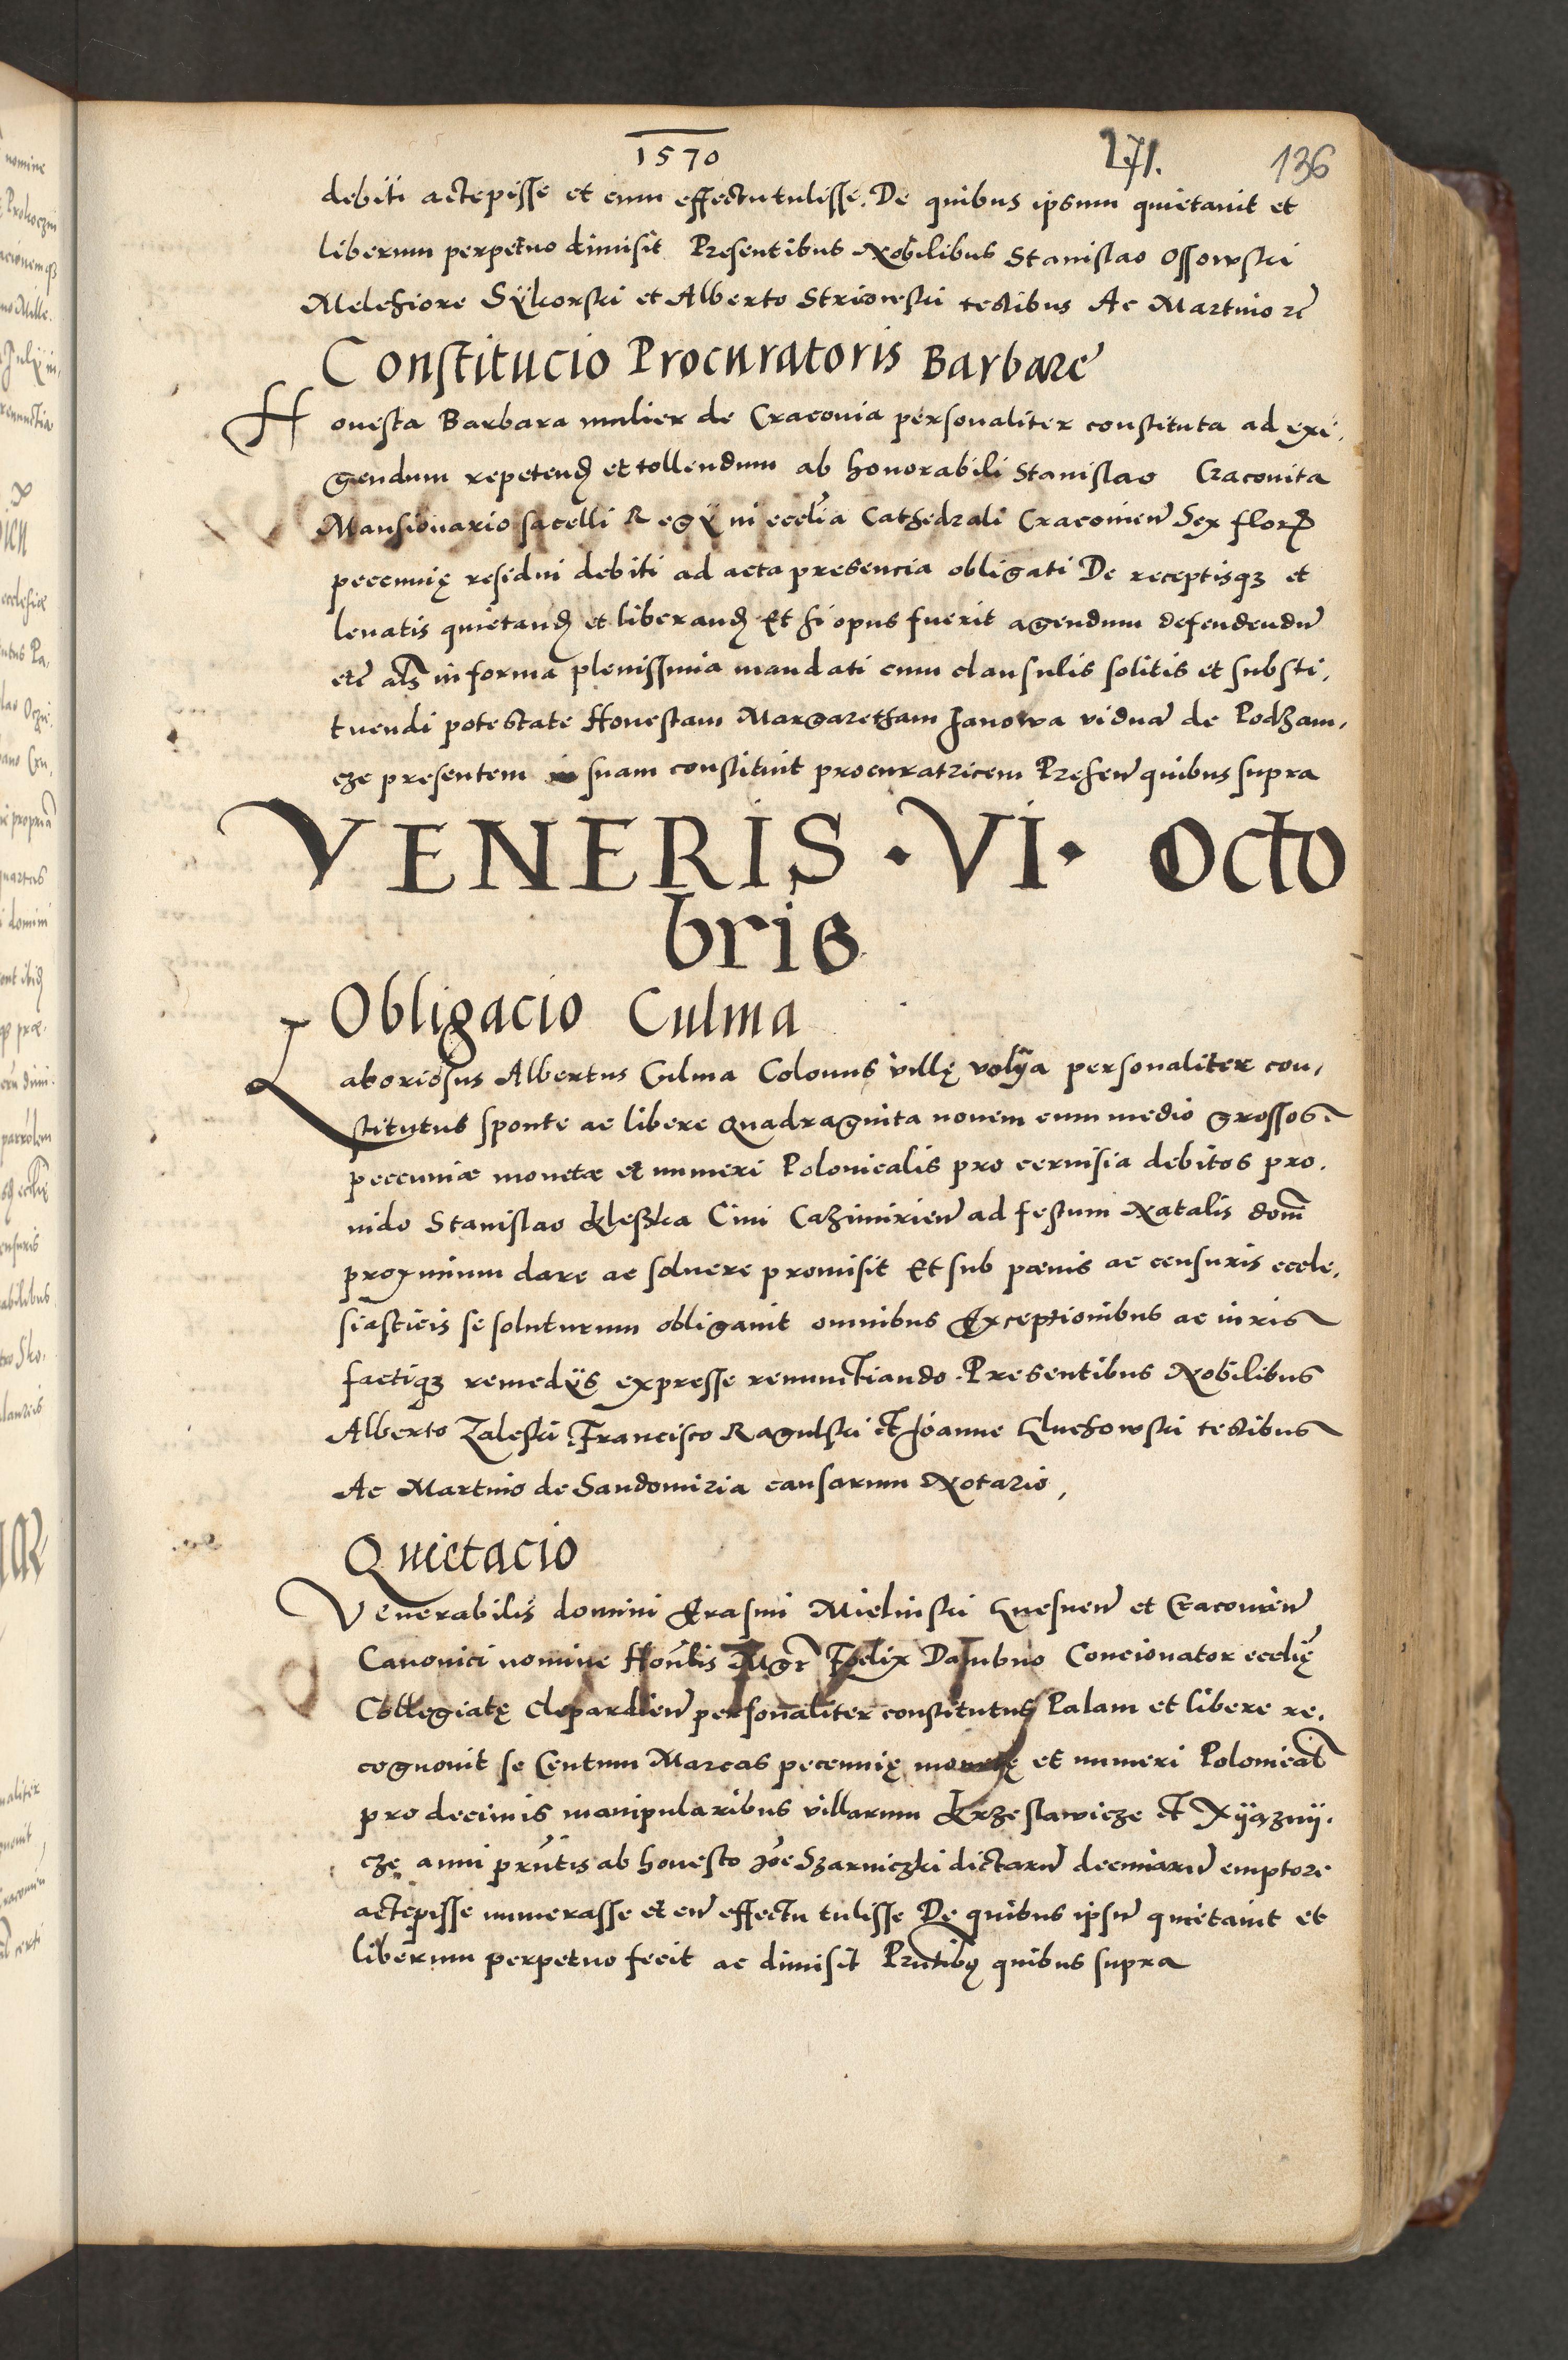 1570
271.
136
debiti accepisse et cum effectu tulisse. De quibus ipsum quietavit et
liberum perpetuo dimisit Presentibus Nobilibus Stanislao Ossowski
Melchiore Sÿkorski et Alberto Striowski testibus Ac Martino zc
Constitucio Procuratoris Barbare
Honesta Barbara mulier de Cracovia personaliter constituta ad exi,
gendum repetend et tollendum ab honorabili Stanislao Cracovita
Mansionario sacelli Regÿ in ecclia Cathedrali Cracovien Sex flor
peccunię residui debiti ad acta presencia obligati De receptisqz et
levatis quietand et liberand Et si opus fuerit agendum defendendu
etc als in forma plenissima mandati cum clausulis solitis et substi,
tuendi potestate Honestam Margaretham Janowa vidua de Podzam,
cze presentem suam constituit procuratricem Presen quibus supra
VENERIS · VI · Octo
bris
Obligacio Culma
Laboriosus Albertus Culma Colonus villę volÿa personaliter con,
stitutus sponte ac libere Quadraginta novem cum medio grossos
peccuniæ monetæ et numeri Polonicalis pro cervisia debitos pro,
vido Stanislao Kleszka Civi Cazimirien ad festum Natalis dom
proximum dare ac solvere promisit Et sub pœnis ac censuris eccle,
siasticis se soluturum obligavit omnibus Exceptionibus ac iuris
factiqz remedÿs expresse renunctiando. Presentibus Nobilibus
Alberto Zaleski, Francisco Ragulski et Joanne Chuchowski testibus
Ac Martino de Sandomiria causarum Notario,
Quietacio
Venerabilis domini Erasmi Mielinski Gnesnen et Cracovien
Canonici nomine Honblis Mgr Foelix Dambno Concionator ecclię
Collegiatę Clepardien personaliter constitutus Palam et libere re,
cognovit se Centum Marcas peccunię monetę et numeri Polonical
pro decimis manipularibus villarum Krzeslawicze et Xÿąznÿ,
czę anni prntis ab honesto Joe Szarniczki dictaru decimaru emptore
accepisse numerasse et cu effectu tulisse De quibus ipsu quietavit et
liberum perpetuo fecit ac dimisit Prntibq quibus supra